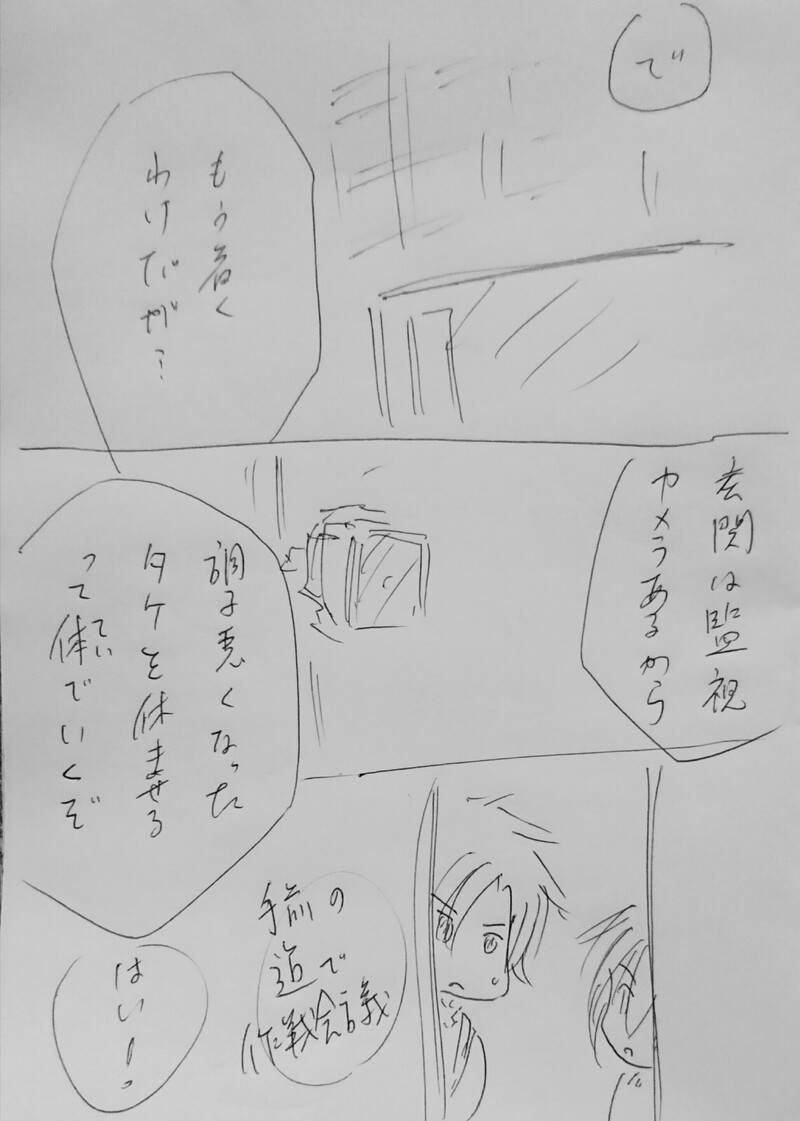 で
もう着く
わけだが…
玄関は監視
カメラあるから
調子悪くなった
タケを休ませる
って体でいくぞ
てい
手前の
道で
作戦会議
はいっ